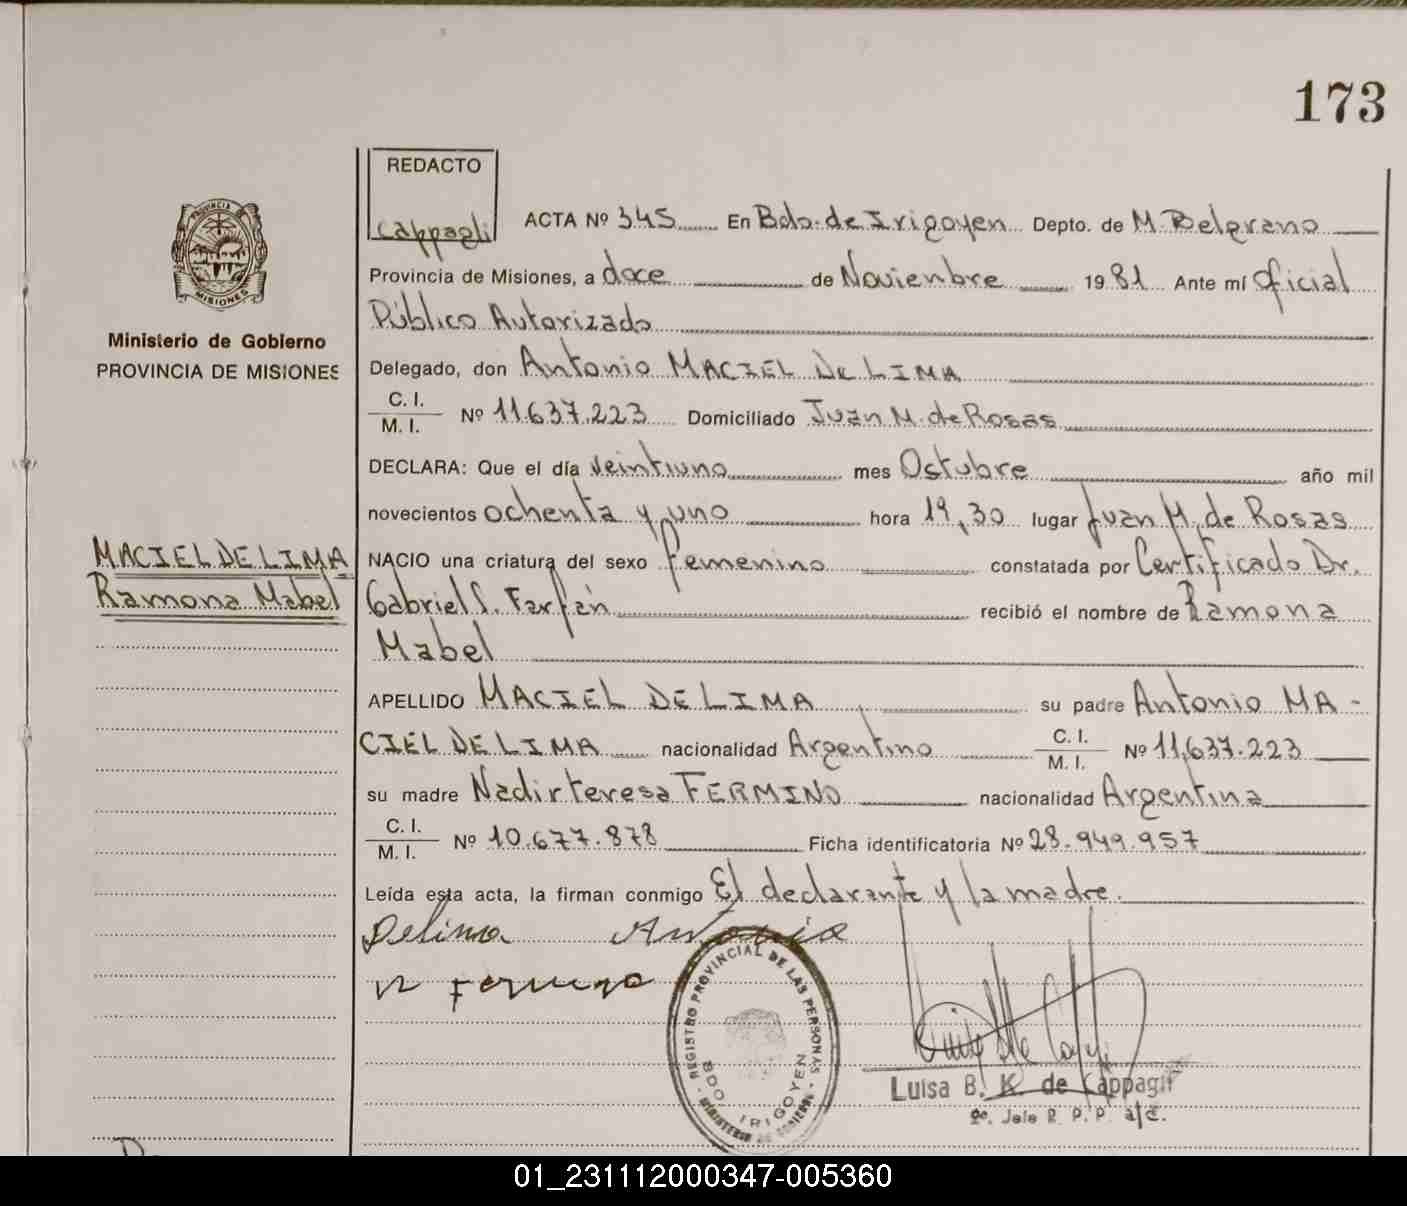 173
REDACTO
Cappagli
ACTA Nº 345 En Bdo. de Irigoyen Depto. de M. Belgrano
Provincia de Misiones, a doce de Novienbre 1981 Ante mí Oficial
Público Autorizado
Delegado, don Antonio MACIEL DE LIMA
C. I.
M. I. Nº 11.637.223 Domiciliado Juan M. de Rosas
DECLARA: Que el día Veintiuno mes Octubre año mil
novecientos ochenta y uno hora 19,30 lugar Juan M. de Rosas
NACIO una criatura del sexo femenino constatada por Certificado Dr.
Gabriel S. Farfán recibió el nombre de Ramona
Mabel
APELLIDO MACIEL DE LIMA su padre Antonio MA-
CIEL DE LIMA nacionalidad Argentino C. I. M. I. Nº 11.637.223
su madre Nadir teresa FERMINO nacionalidad Argentina
C. I.
M. I. Nº 10.677.878 Ficha identificatoria Nº 28.949.957
Leída esta acta, la firman conmigo El declarante y la madre.
Delima Antonio
N Fermino
PROVINCIA DE
MISIONES
Ministerio de Gobierno
PROVINCIA DE MISIONES
MACIEL DE LIMA
Ramona Mabel
REGISTRO PROVINCIAL DE LAS PERSONAS
BDO. IRIGOYEN
MINISTERIO DE GOBIERNO
Luisa B. K. de Cappagli
Jefe R. P. P. a/c.
01_231112000347-005360